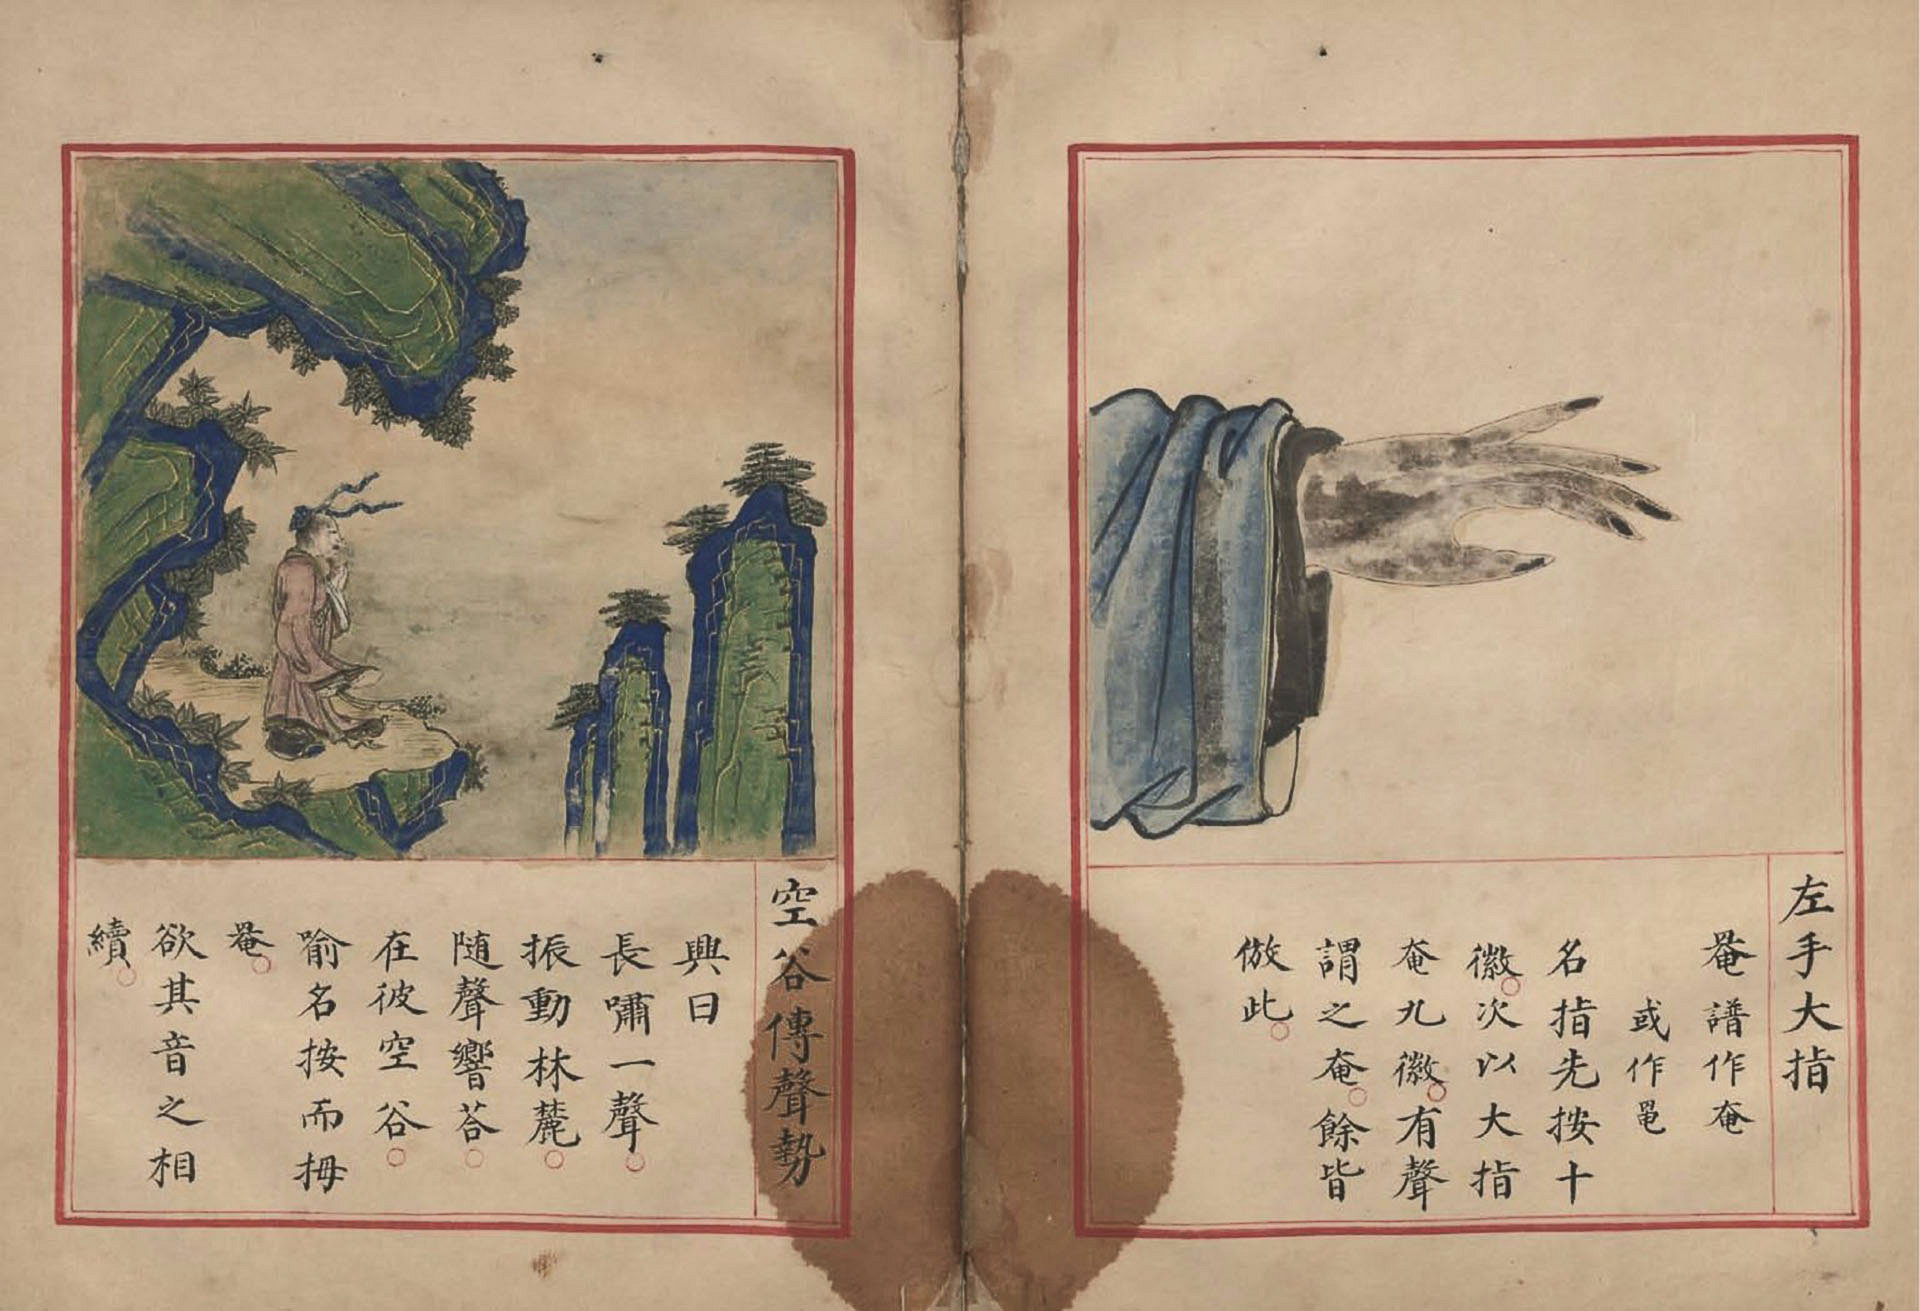 左手大指
罨譜作奄
或作黽
名指先按十
徽次以大指
奄九徽有聲
謂之奄餘皆
倣此
空谷傳聲勢
興曰
長嘯一聲
振動林麓
随聲響荅
在彼空谷
喻名按而拇
罨
欲其音之相
續